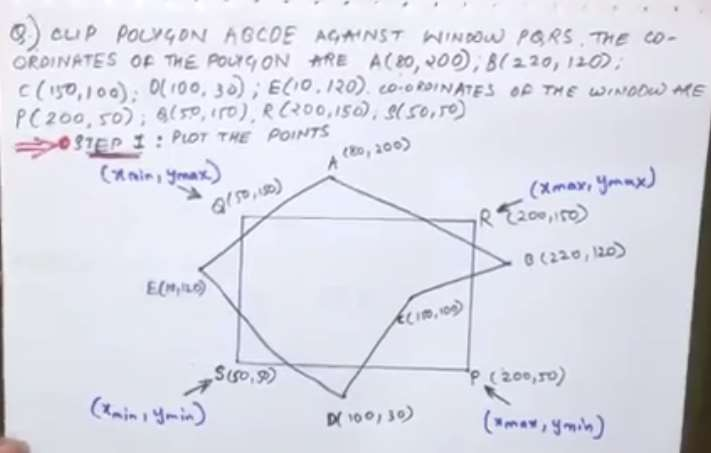 Q.) CLIP POLYGON ABCDE AGAINST WINDOW PQRS. THE CO-
ORDINATES OF THE POLYGON ARE A(80,200); B(220,120);
C(150,100); D(100,30); E(10,120). CO-ORDINATES OF THE WINDOW ARE
P(200,50); Q(50,150); R(200,150); S(50,50)
STEP I : PLOT THE POINTS
A (80,200)
(xmin, ymax)
Q(50,150)
(xmax, ymax)
R (200,150)
B (220,120)
E(10,120)
C(150,100)
S(50,50)
P (200,50)
(xmin, ymin)
D(100,30)
(xmax, ymin)